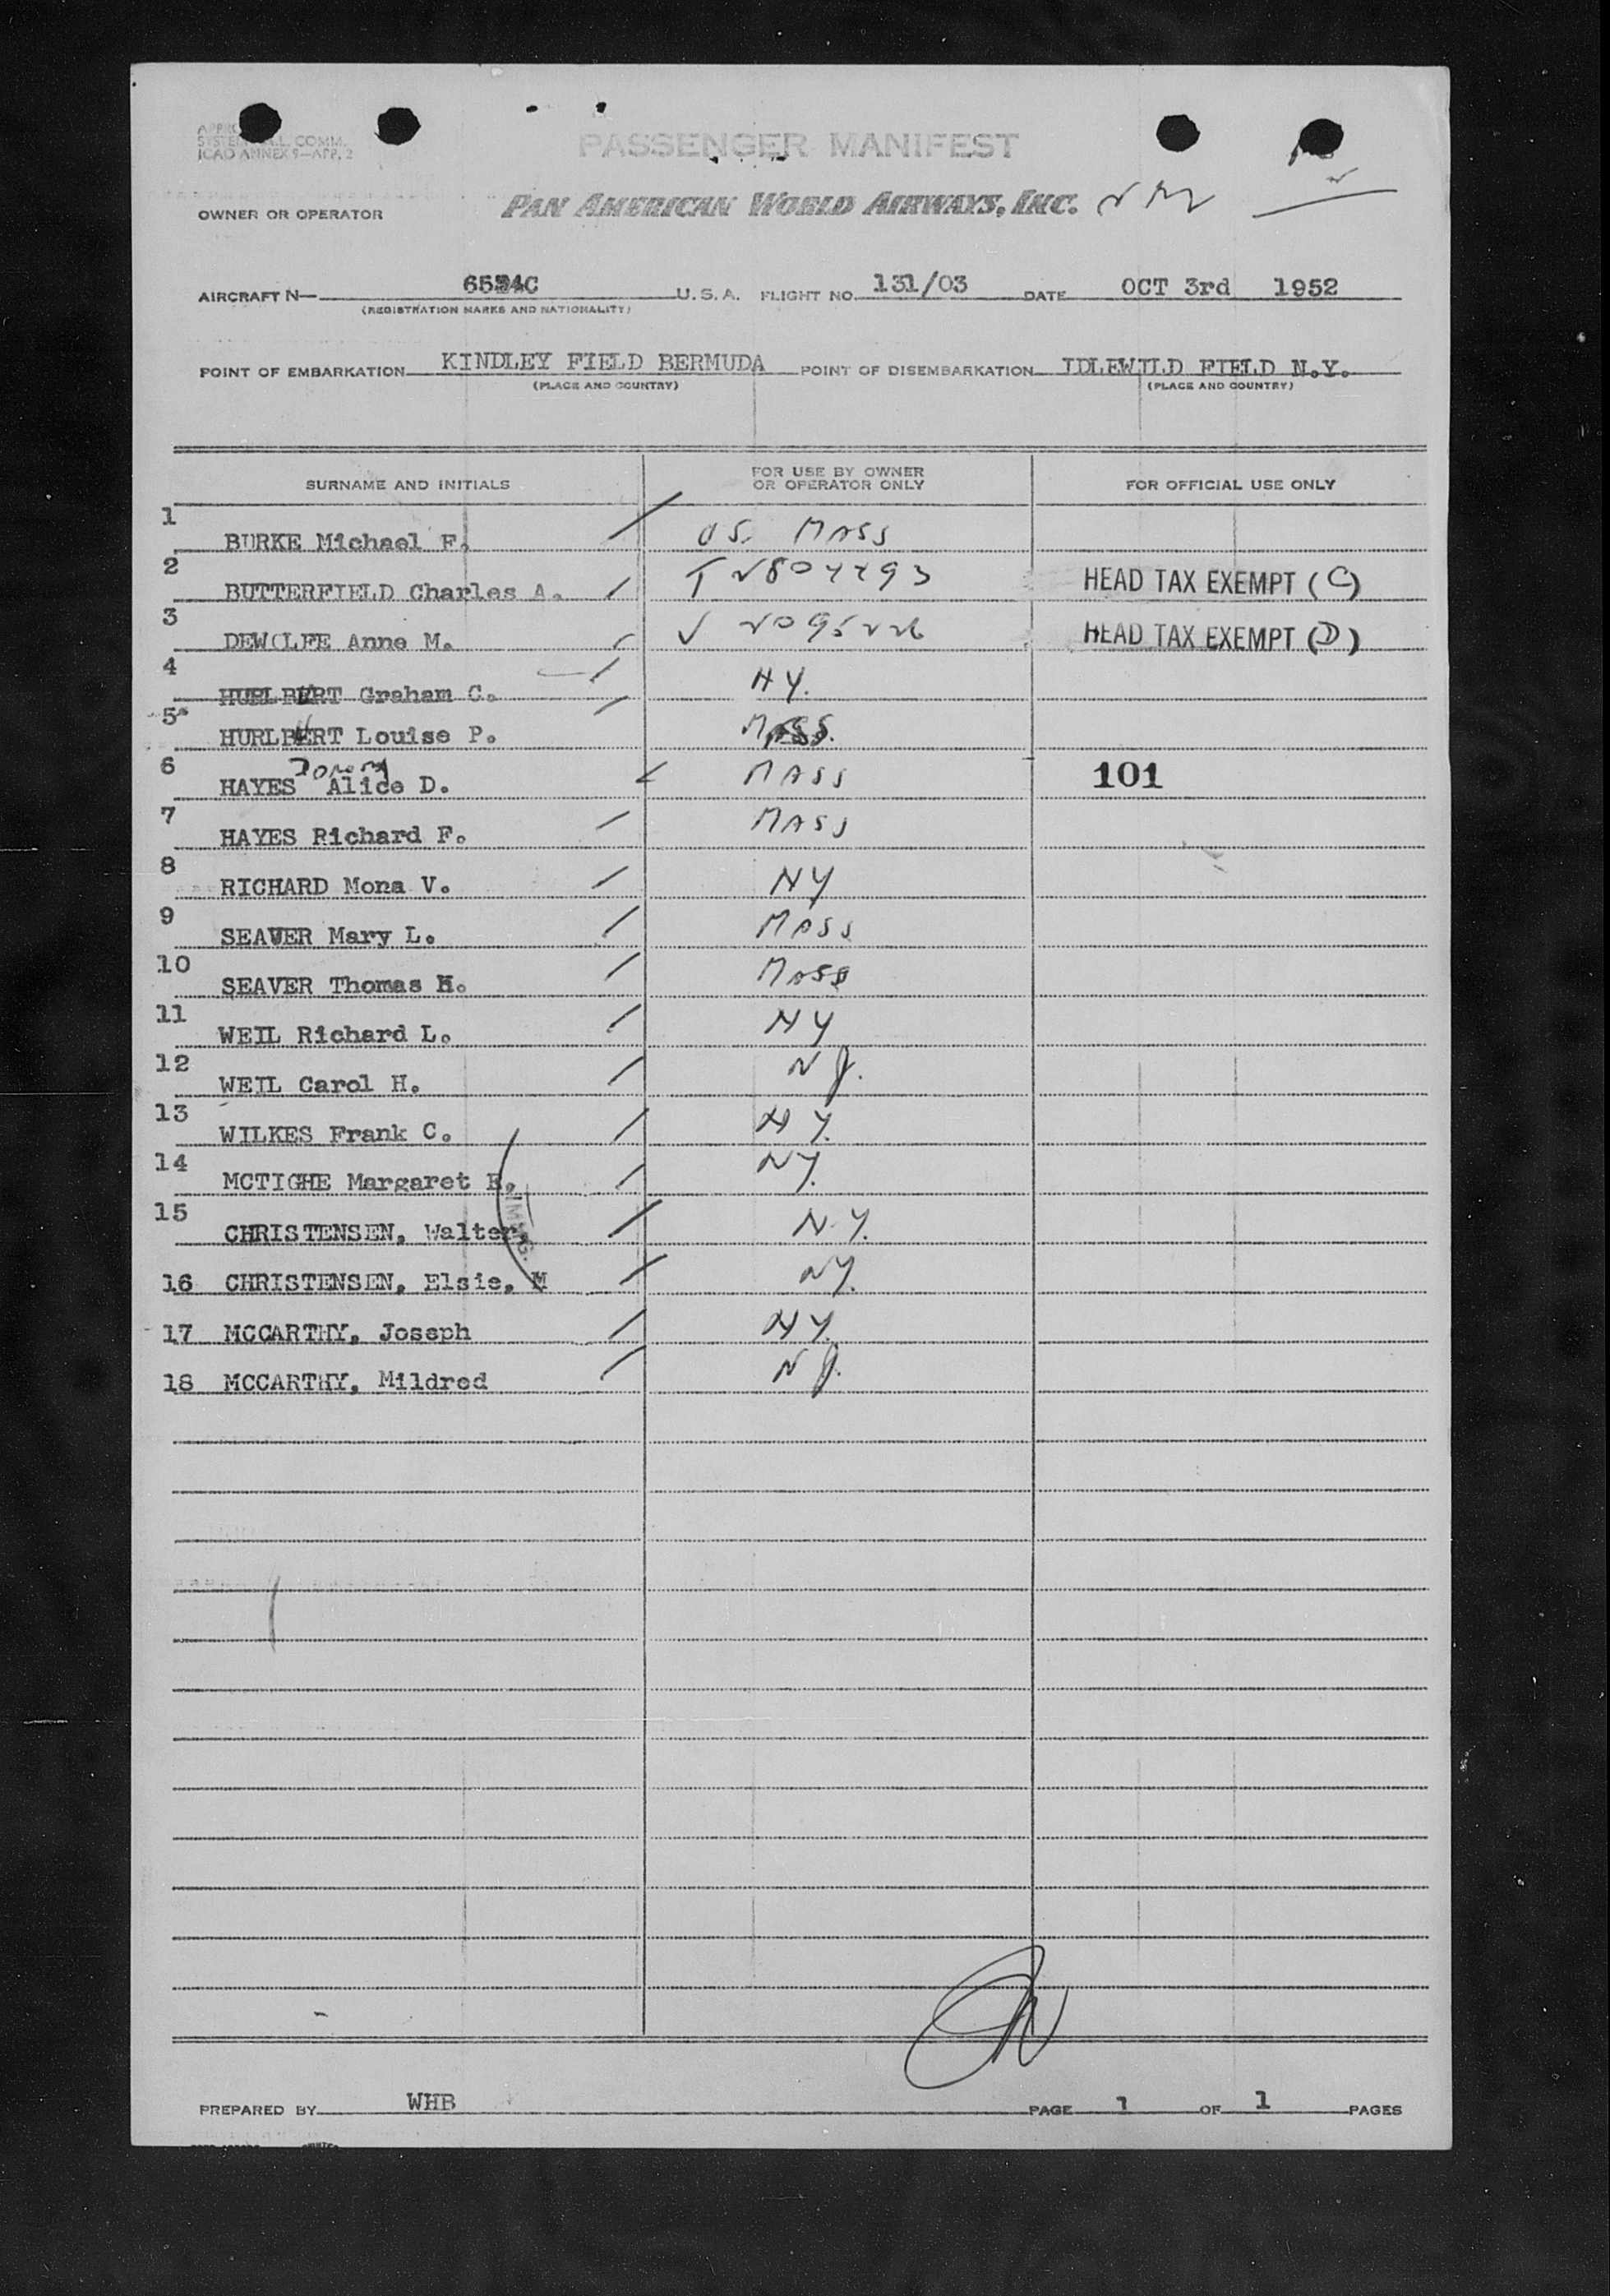 PASSENGER MANIFEST
SYSTEM COMM.
ICAO ANNEX 9—APP. 2
OWNER OR OPERATOR PAN AMERICAN WORLD AIRWAYS, INC.
AIRCRAFT N— U.S.A. FLIGHT NO. 131/03 DATE OCT 3rd 1952
(REGISTRATION MARKS AND NATIONALITY)
POINT OF EMBARKATION KINDLEY FIELD BERMUDA POINT OF DISEMBARKATION IDLEWILD FIELD N.Y.
(PLACE AND COUNTRY) (PLACE AND COUNTRY)
SURNAME AND INITIALS FOR USE BY OWNER OR OPERATOR ONLY FOR OFFICIAL USE ONLY
1 BURKE Michael F. US. MASS
2 BUTTERFIELD Charles A. HEAD TAX EXEMPT (C)
3 DEWOLFE Anne M. HEAD TAX EXEMPT (D)
4 HURLBURT Graham C. NY.
5 HURLBURT Louise P. MASS.
6 HAYES Alice D. MASS 101
7 HAYES Richard F. MASS
8 RICHARD Mona V. NY
9 SEAVER Mary L. MASS
10 SEAVER Thomas H. MASS
11 WEIL Richard L. NY
12 WEIL Carol H. NJ.
13 WILKES Frank C. NY.
14 MCTIGHE Margaret E. NY.
15 CHRISTENSEN, Walter, N.Y.
16 CHRISTENSEN, Elsie, M NY.
17 MCCARTHY, Joseph NY.
18 MCCARTHY, Mildred NJ.
IMMIG.
PREPARED BY WHB PAGE 1 OF 1 PAGES